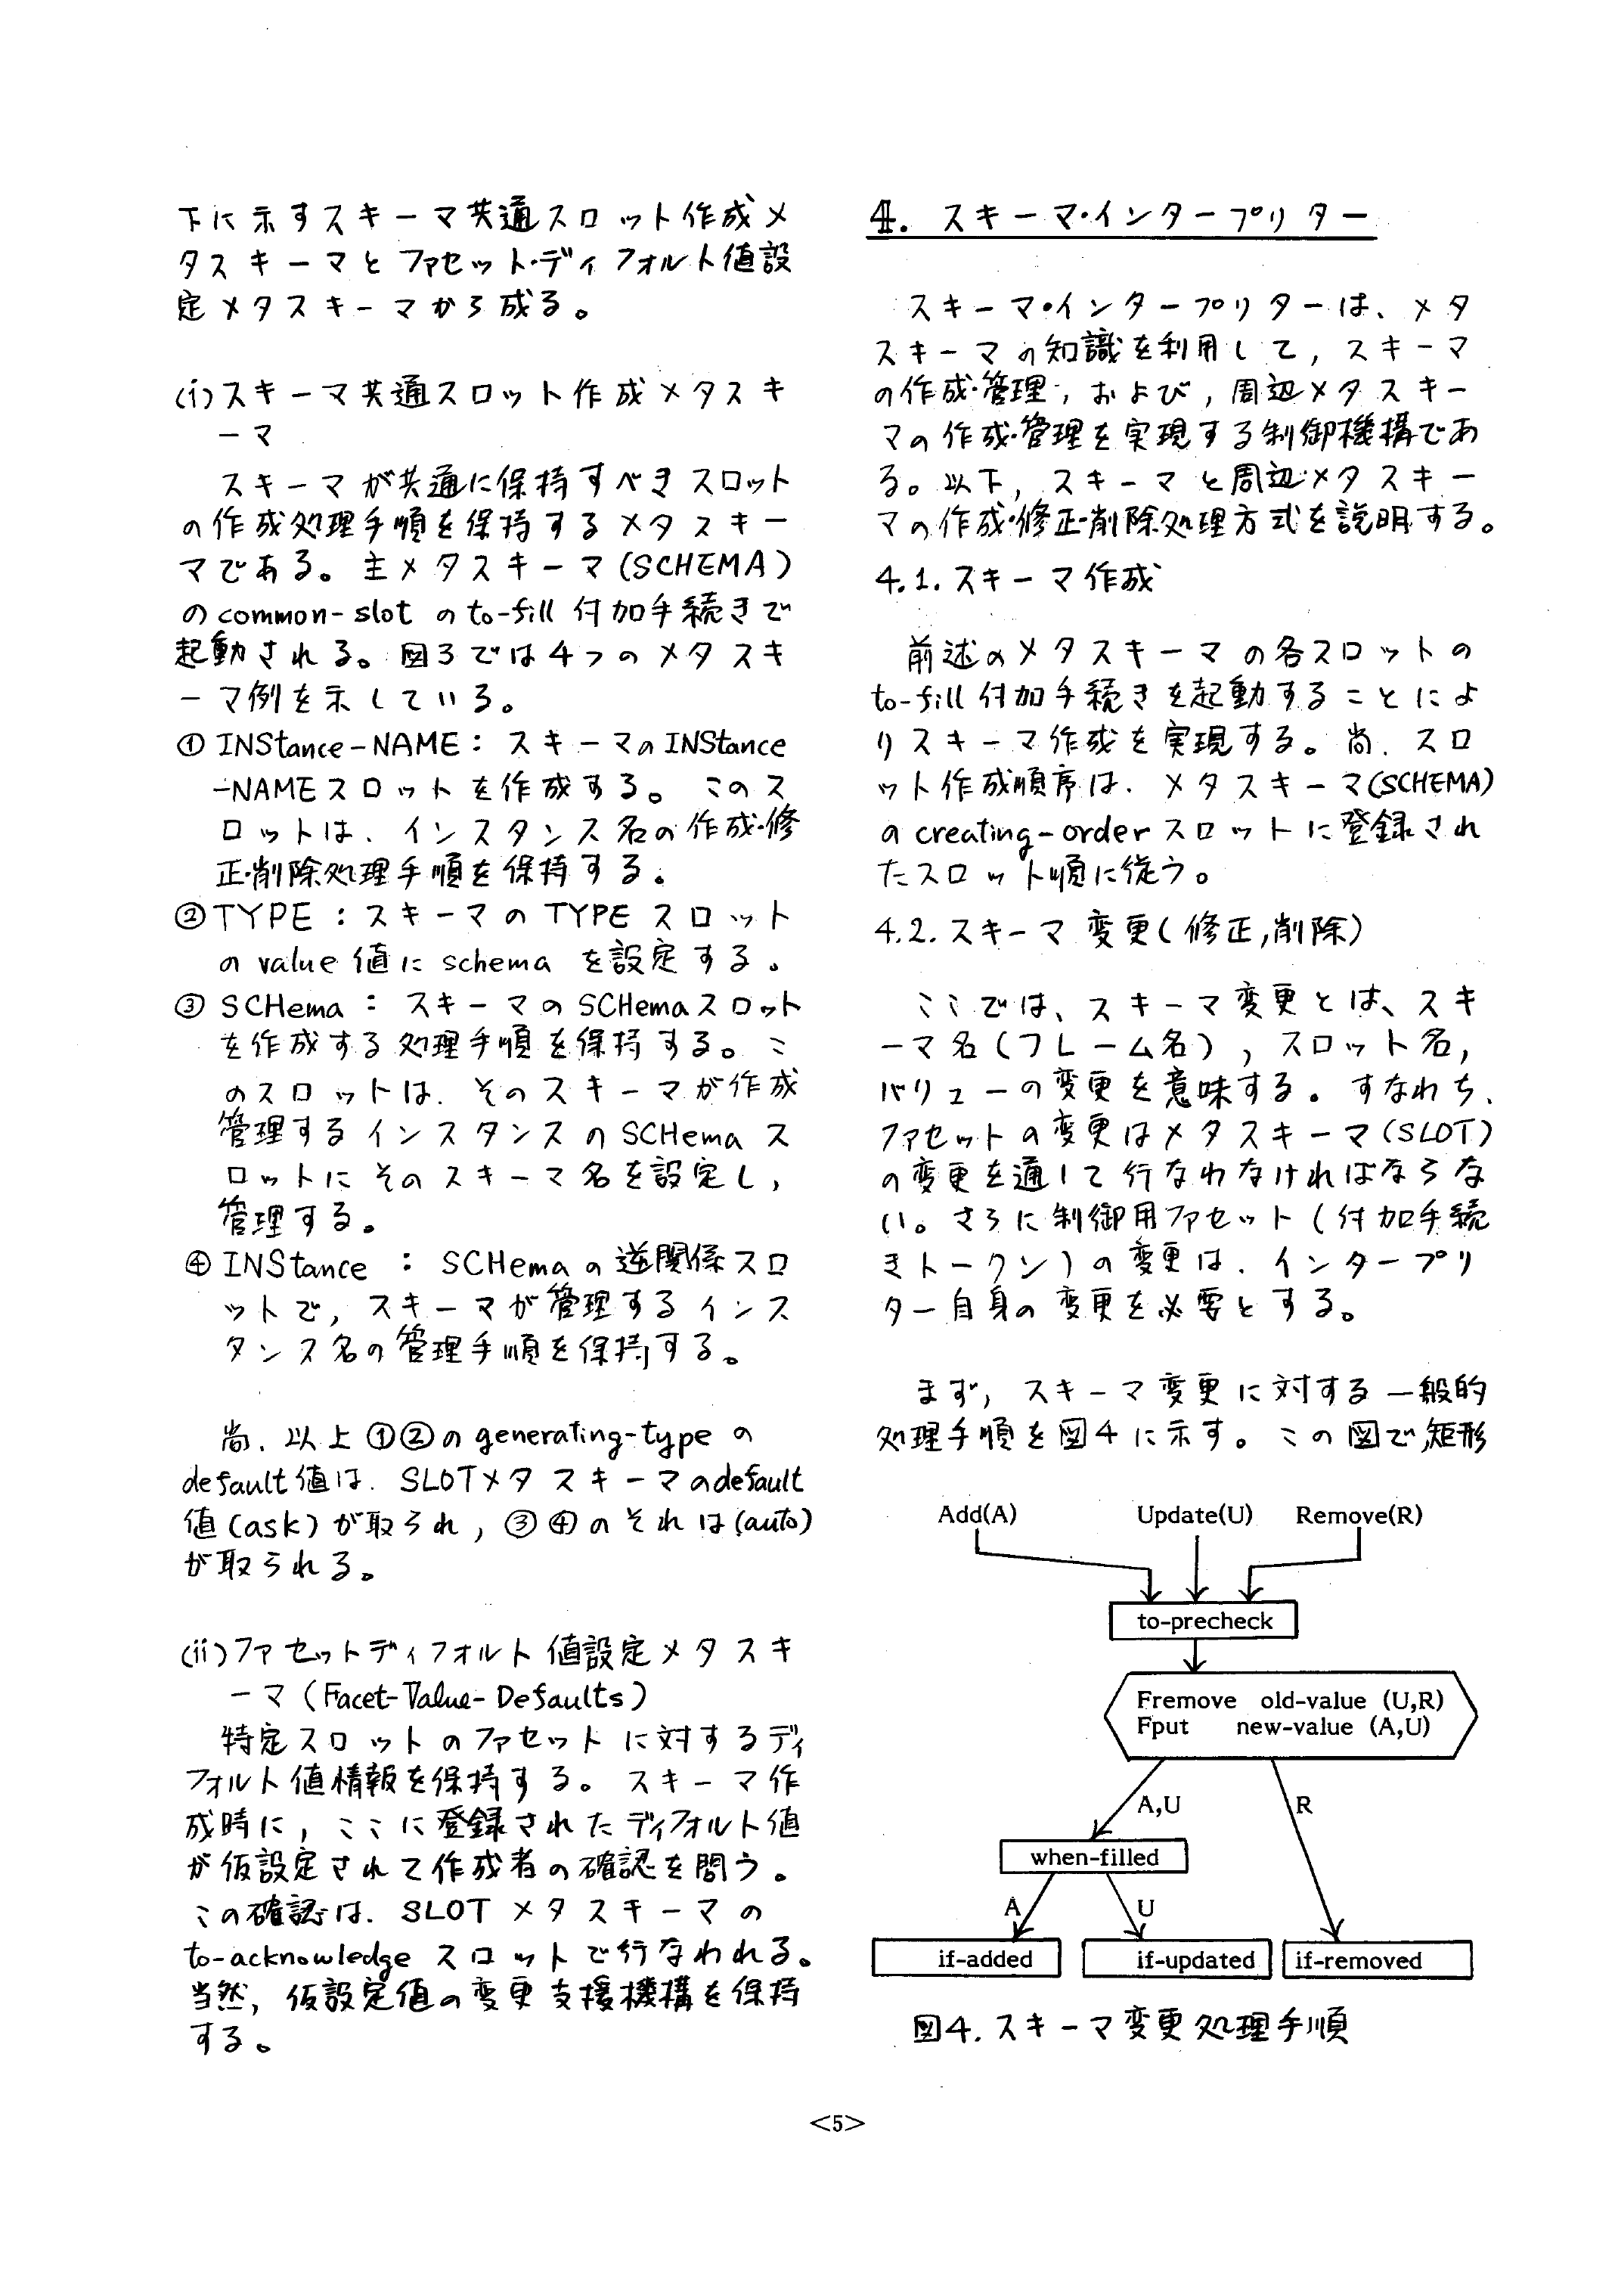 下に示すスキーマ共通スロット作成メ
タスキーマとファセット・ディフォルト値設
定メタスキーマから成る。
(i)スキーマ共通スロット作成メタスキ
ーマ
スキーマが共通に保持すべきスロット
の作成処理手順を保持するメタスキー
マである。主メタスキーマ(SCHEMA)
のcommon-slotのto-fill付加手続きで
起動される。図3では4つのメタスキ
ーマ例を示している。
① INStance-NAME: スキーマのINStance
-NAMEスロットを作成する。このス
ロットは、インスタンス名の作成・修
正・削除処理手順を保持する。
②TYPE:スキーマのTYPEスロット
のvalue値にschemaを設定する。
③ SCHema: スキーマのSCHemaスロット
を作成する処理手順を保持する。こ
のスロットは、そのスキーマが作成
管理するインスタンスのSCHemaス
ロットにそのスキーマ名を設定し,
管理する。
④ INStance : SCHemaの逆関係スロ
ットで,スキーマが管理するインス
タンス名の管理手順を保持する。
尚、以上①②のgenerating-typeの
default値は、SLOTメタスキーマのdefault
値(ask)が取られ,③④のそれは(auto)
が取られる。
(ii)ファセットディフォルト値設定メタスキ
ーマ(Facet-Value-Defaults)
特定スロットのファセットに対するディ
フォルト値情報を保持する。スキーマ作
成時に,ここに登録されたディフォルト値
が仮設定されて作成者の確認を問う。
この確認は、SLOTメタスキーマの
to-acknowledgeスロットで行なわれる。
当然,仮設定値の変更支援機構を保持
する。
4. スキーマ・インタープリター
スキーマ・インタープリターは、メタ
スキーマの知識を利用して,スキーマ
の作成・管理,および,周辺メタスキー
マの作成・管理を実現する制御機構であ
る。以下,スキーマと周辺メタスキー
マの作成・修正・削除処理方式を説明する。
4.1.スキーマ作成
前述のメタスキーマの各スロットの
to-fill付加手続きを起動することによ
りスキーマ作成を実現する。尚、スロ
ット作成順序は、メタスキーマ(SCHEMA)
のcreating-orderスロットに登録され
たスロット順に従う。
4.2.スキーマ変更(修正,削除)
ここでは、スキーマ変更とは、スキ
ーマ名(フレーム名),スロット名,
バリューの変更を意味する。すなわち、
ファセットの変更はメタスキーマ(SLOT)
の変更を通して行なわなければならな
い。さらに制御用ファセット(付加手続
きトークン)の変更は、インタープリ
ター自身の変更を必要とする。
まず,スキーマ変更に対する一般的
処理手順を図4に示す。この図で,矩形
Add(A) Update(U) Remove(R)
to-precheck
Fremove old-value (U,R)
Fput new-value (A,U)
A,U R
when-filled
A U
if-added if-updated if-removed
図4.スキーマ変更処理手順
<5>